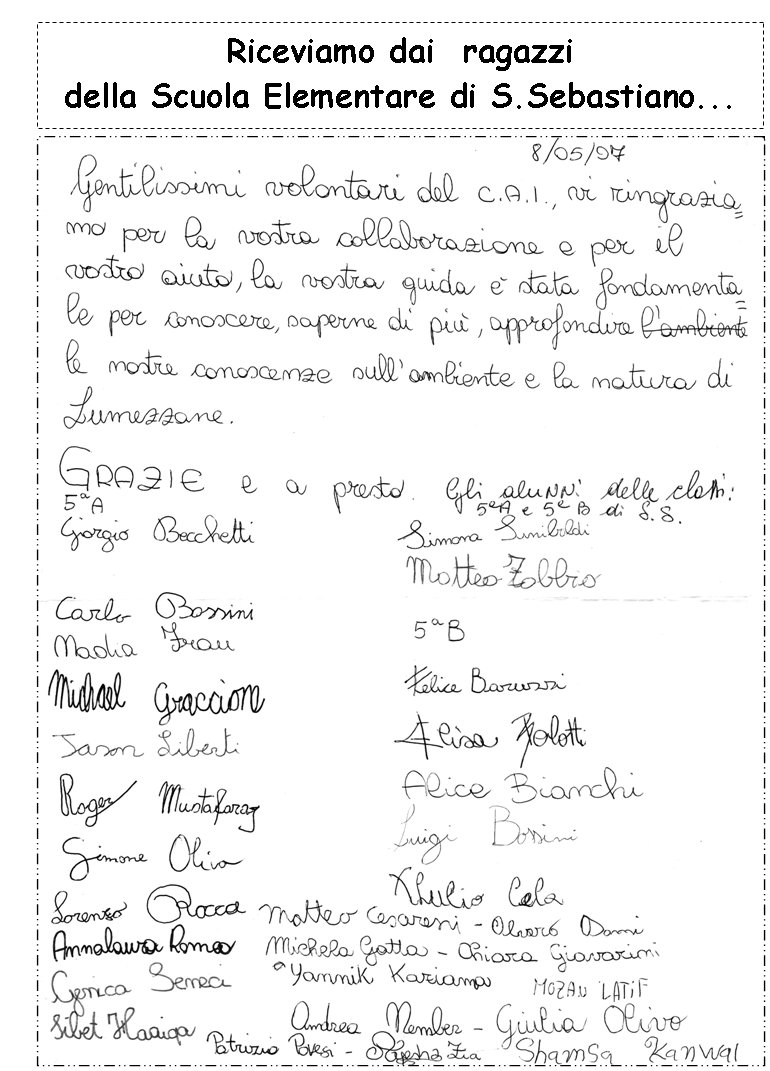 Riceviamo dai ragazzi
della Scuola Elementare di S.Sebastiano...
8/05/97
Gentilissimi volontari del C.A.I., vi ringrazia=
mo per la vostra collaborazione e per il
vostro aiuto, la vostra guida è stata fondamenta=
le per conoscere, saperne di più, approfondire l'ambiente
le nostre conoscenze sull'ambiente e la natura di
Lumezzane.
GRAZIE e a presto. Gli alunni delle classi:
5ªA e 5ª B di S.S.
5ªA
Giorgio Becchetti
Simona Sinibaldi
Matteo Zobbio
Carlo Bossini
Frau
Michael Graccione
Jason Liberti
Roger Mustafaraj
Simone Olivo
Lorenzo Rocca
Annalaura Romeo
Gerica Seneci
Sibet
5ªB
Felice Baruzzi
Elisa
Alice Bianchi
Luigi Bossini
Khulio Cela
Matteo Cesareni - Danni
Michela Gatta - Chiara Giavarini
Yannik Kariama MOZAN LATIF
Andrea Member - Giulia Olivo
Patrizio Pavesi - Zia Shamsa Kanwal